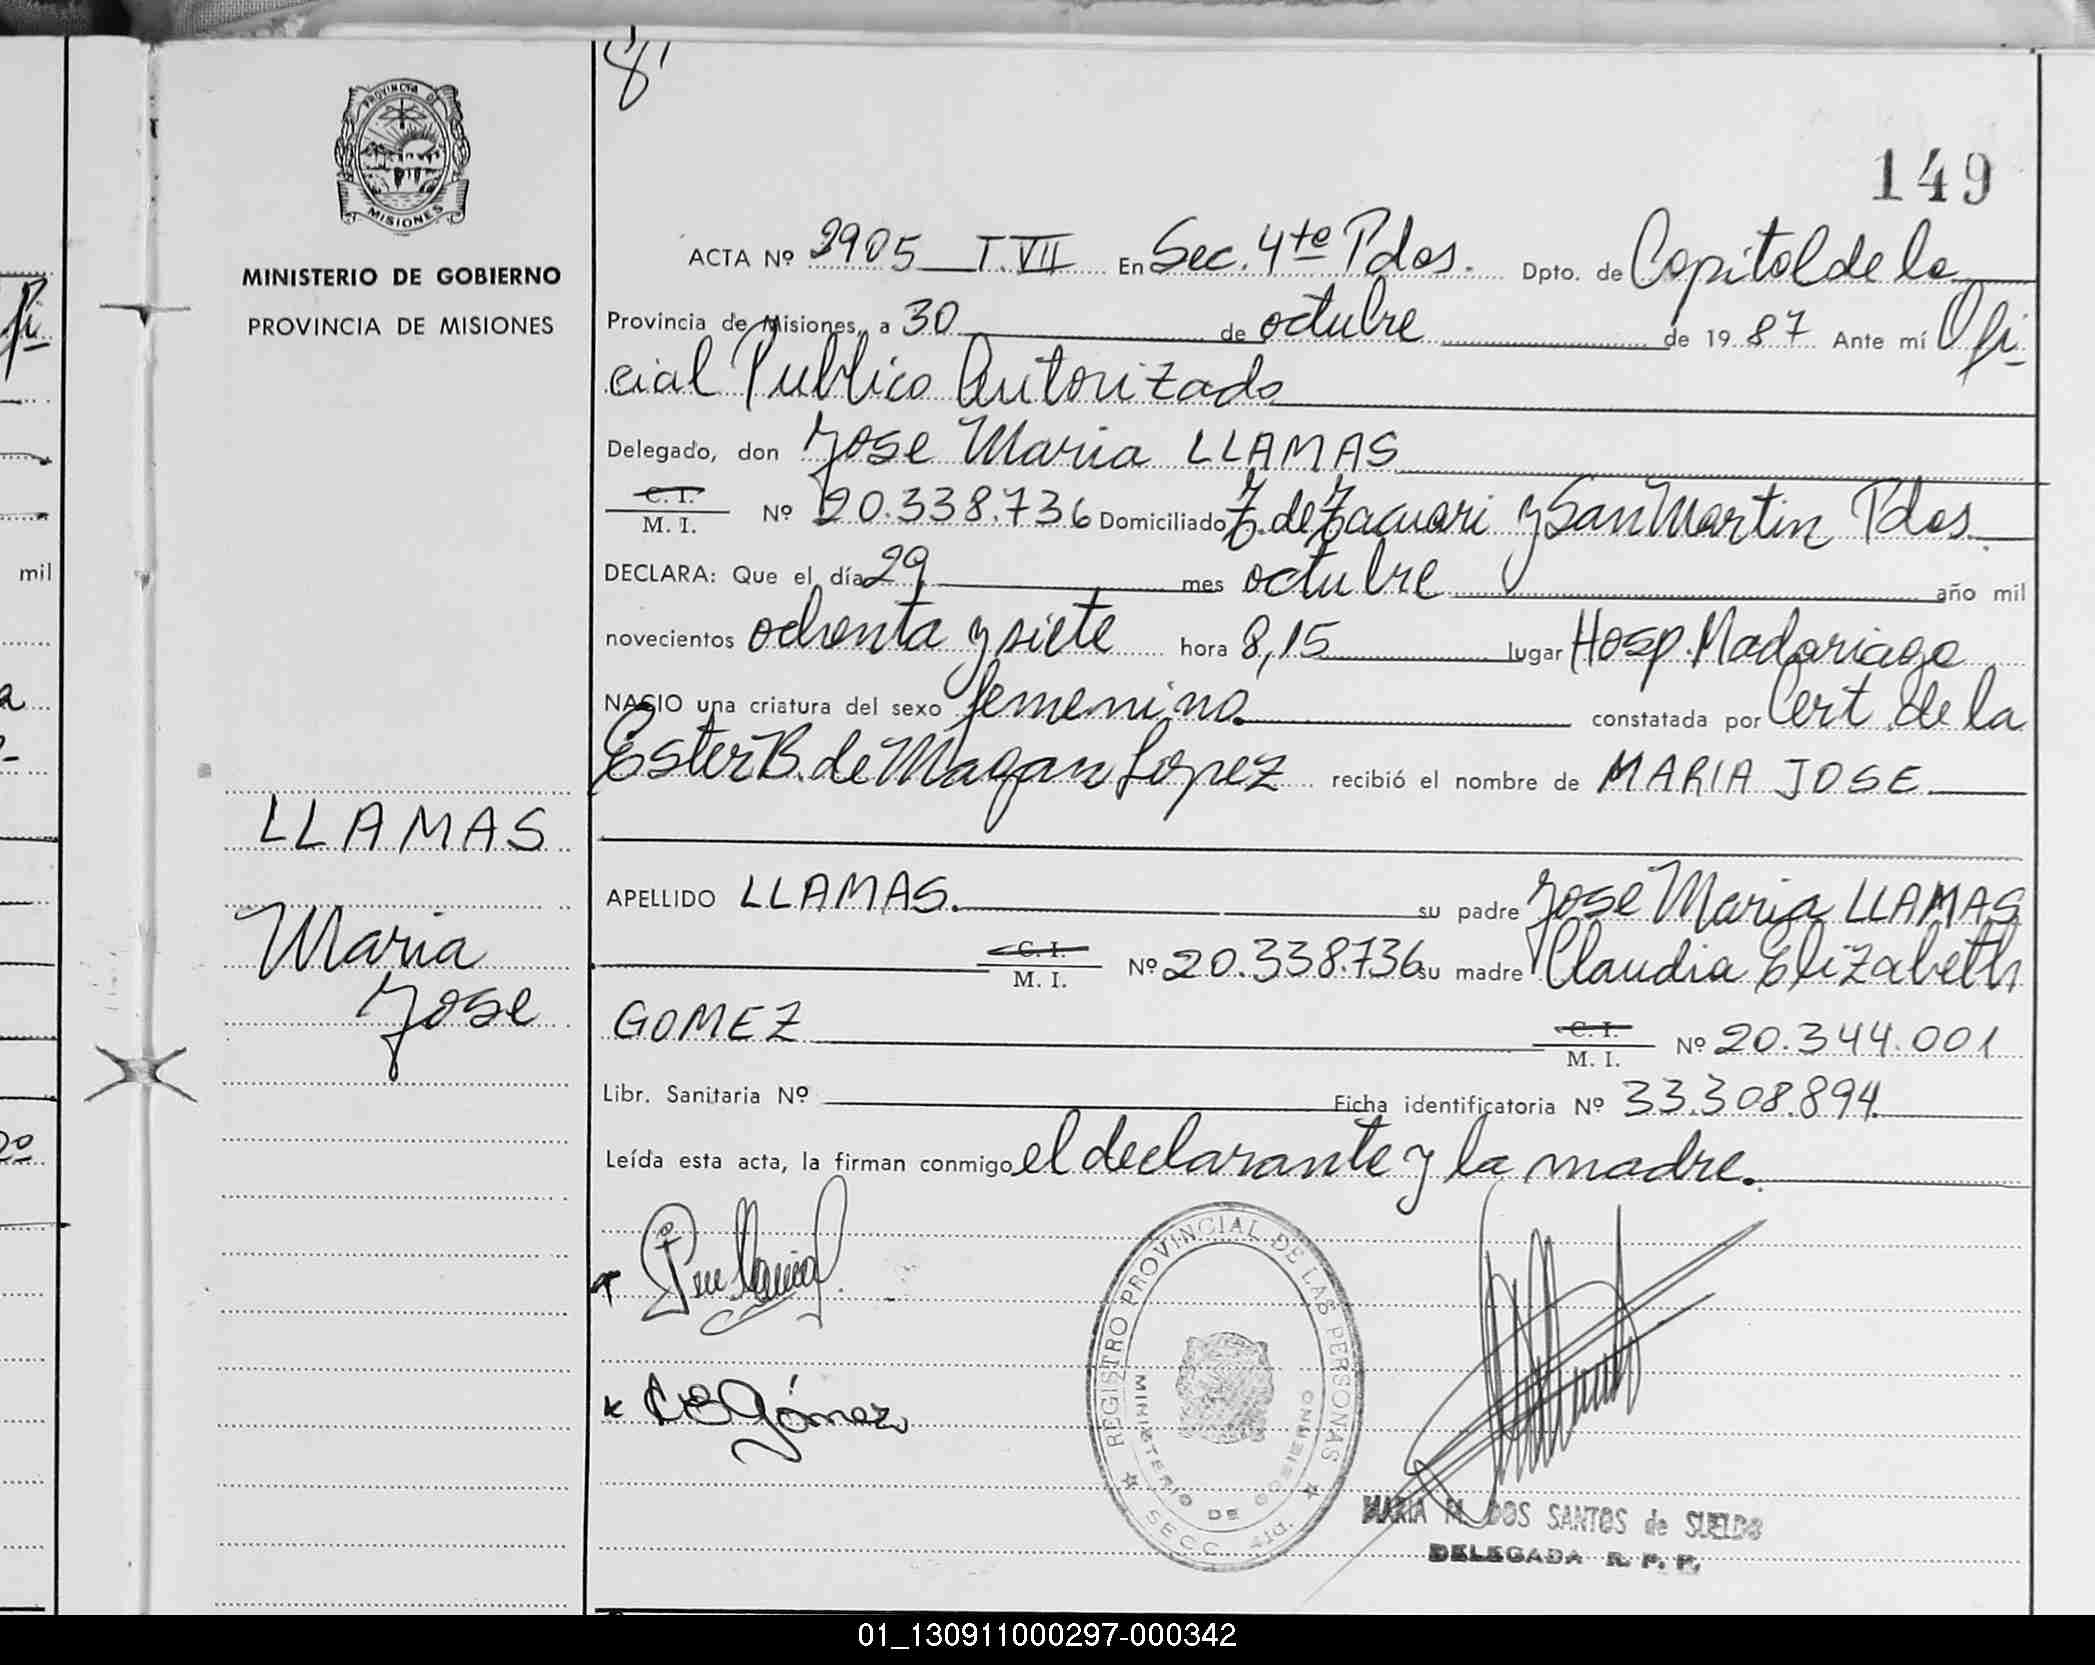 8'
149
PROVINCIA DE
MISIONES
MINISTERIO DE GOBIERNO
PROVINCIA DE MISIONES
ACTA Nº 2905 T. VII En Sec. 4ta Pdas. Dpto. de Capital de la
Provincia de Misiones, a 30 de octubre de 1987 Ante mí Ofi-
cial Publico Autorizado
Delegado, don Jose Maria LLAMAS
C. I.
M. I. Nº 20.338.736 Domiciliado Z. de Zacuari y San Martin Pdas.
DECLARA: Que el día 29 mes octubre año mil
novecientos ochenta y siete hora 8,15 lugar Hosp. Madariaga
NACIO una criatura del sexo femenino constatada por Cert de la
Ester B. de Magan Lopez recibió el nombre de MARIA JOSE
LLAMAS
Maria
Jose
APELLIDO LLAMAS. su padre Jose Maria LLAMAS
C. I.
M. I. Nº 20.338.736 su madre Claudia Elizabeth
GOMEZ C. I.
M. I. Nº 20.344.001
Libr. Sanitaria Nº Ficha identificatoria Nº 33.308.894
Leída esta acta, la firman conmigo el declarante y la madre.
CEGómez
REGISTRO PROVINCIAL DE LAS PERSONAS
MINISTERIO DE GOBIERNO
SECC. 4ta.
MARIA M. DOS SANTOS de SUELDO
DELEGADA R. P. P.
mil
01_130911000297-000342